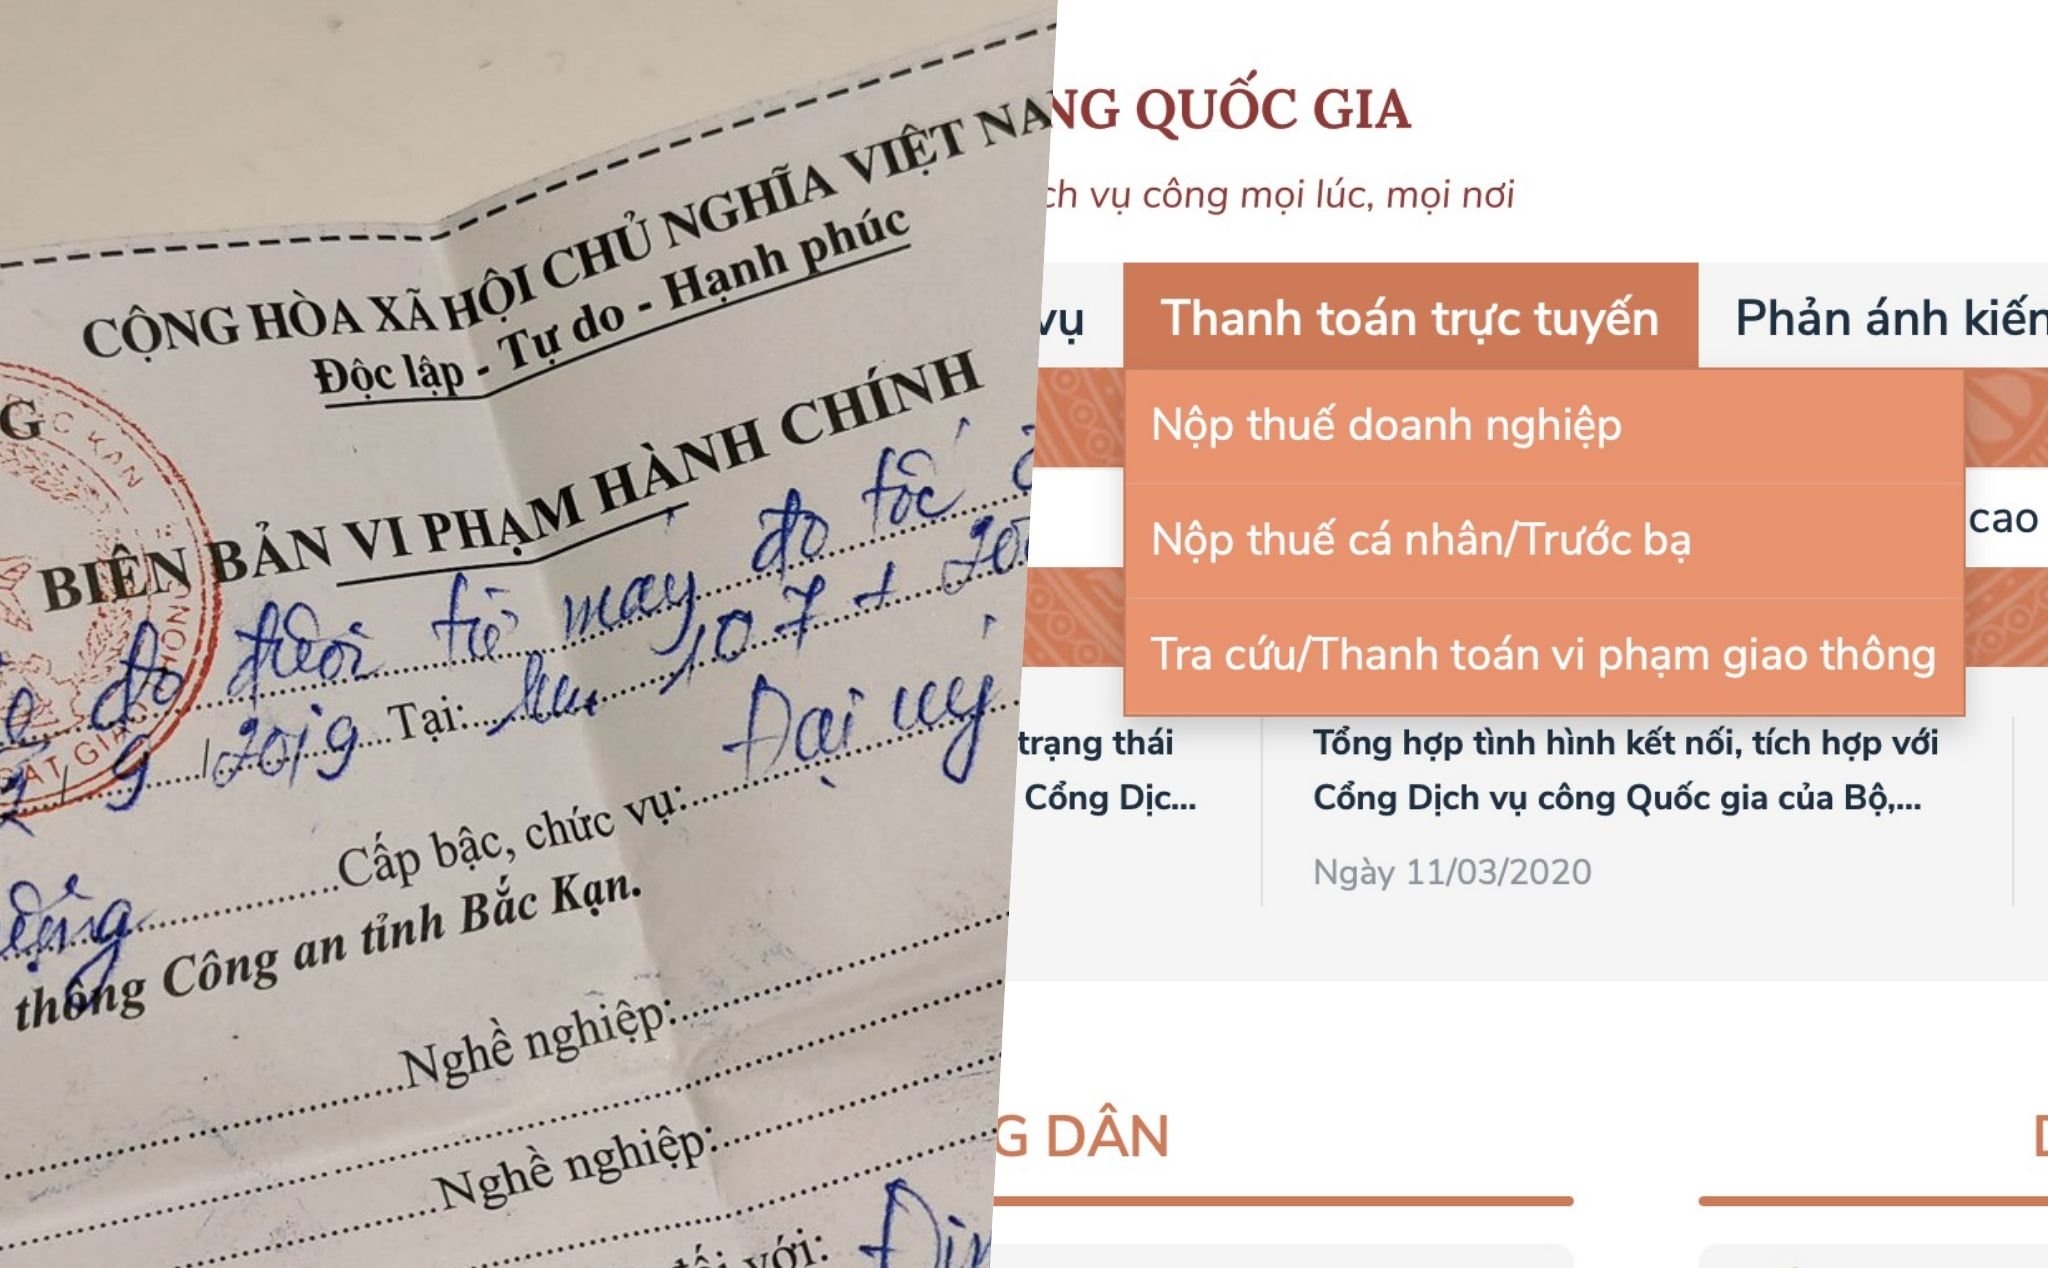 CỘNG HÒA XÃ HỘI CHỦ NGHĨA VIỆT NA
Độc lập - Tự do - Hạnh phúc
G
BIÊN BẢN VI PHẠM HÀNH CHÍNH
đo dưới từ máy đo tốc
9/2019 Tại: km 107 + 200
Cấp bậc, chức vụ: Đại uý
thông Công an tỉnh Bắc Kạn.
Nghề nghiệp:
Nghề nghiệp:
đối với:
NG QUỐC GIA
ch vụ công mọi lúc, mọi nơi
vụ
Thanh toán trực tuyến
Phản ánh kiến
Nộp thuế doanh nghiệp
Nộp thuế cá nhân/Trước bạ
cao
Tra cứu/Thanh toán vi phạm giao thông
trạng thái
Cổng Dịc...
Tổng hợp tình hình kết nối, tích hợp với
Cổng Dịch vụ công Quốc gia của Bộ,...
Ngày 11/03/2020
G DÂN